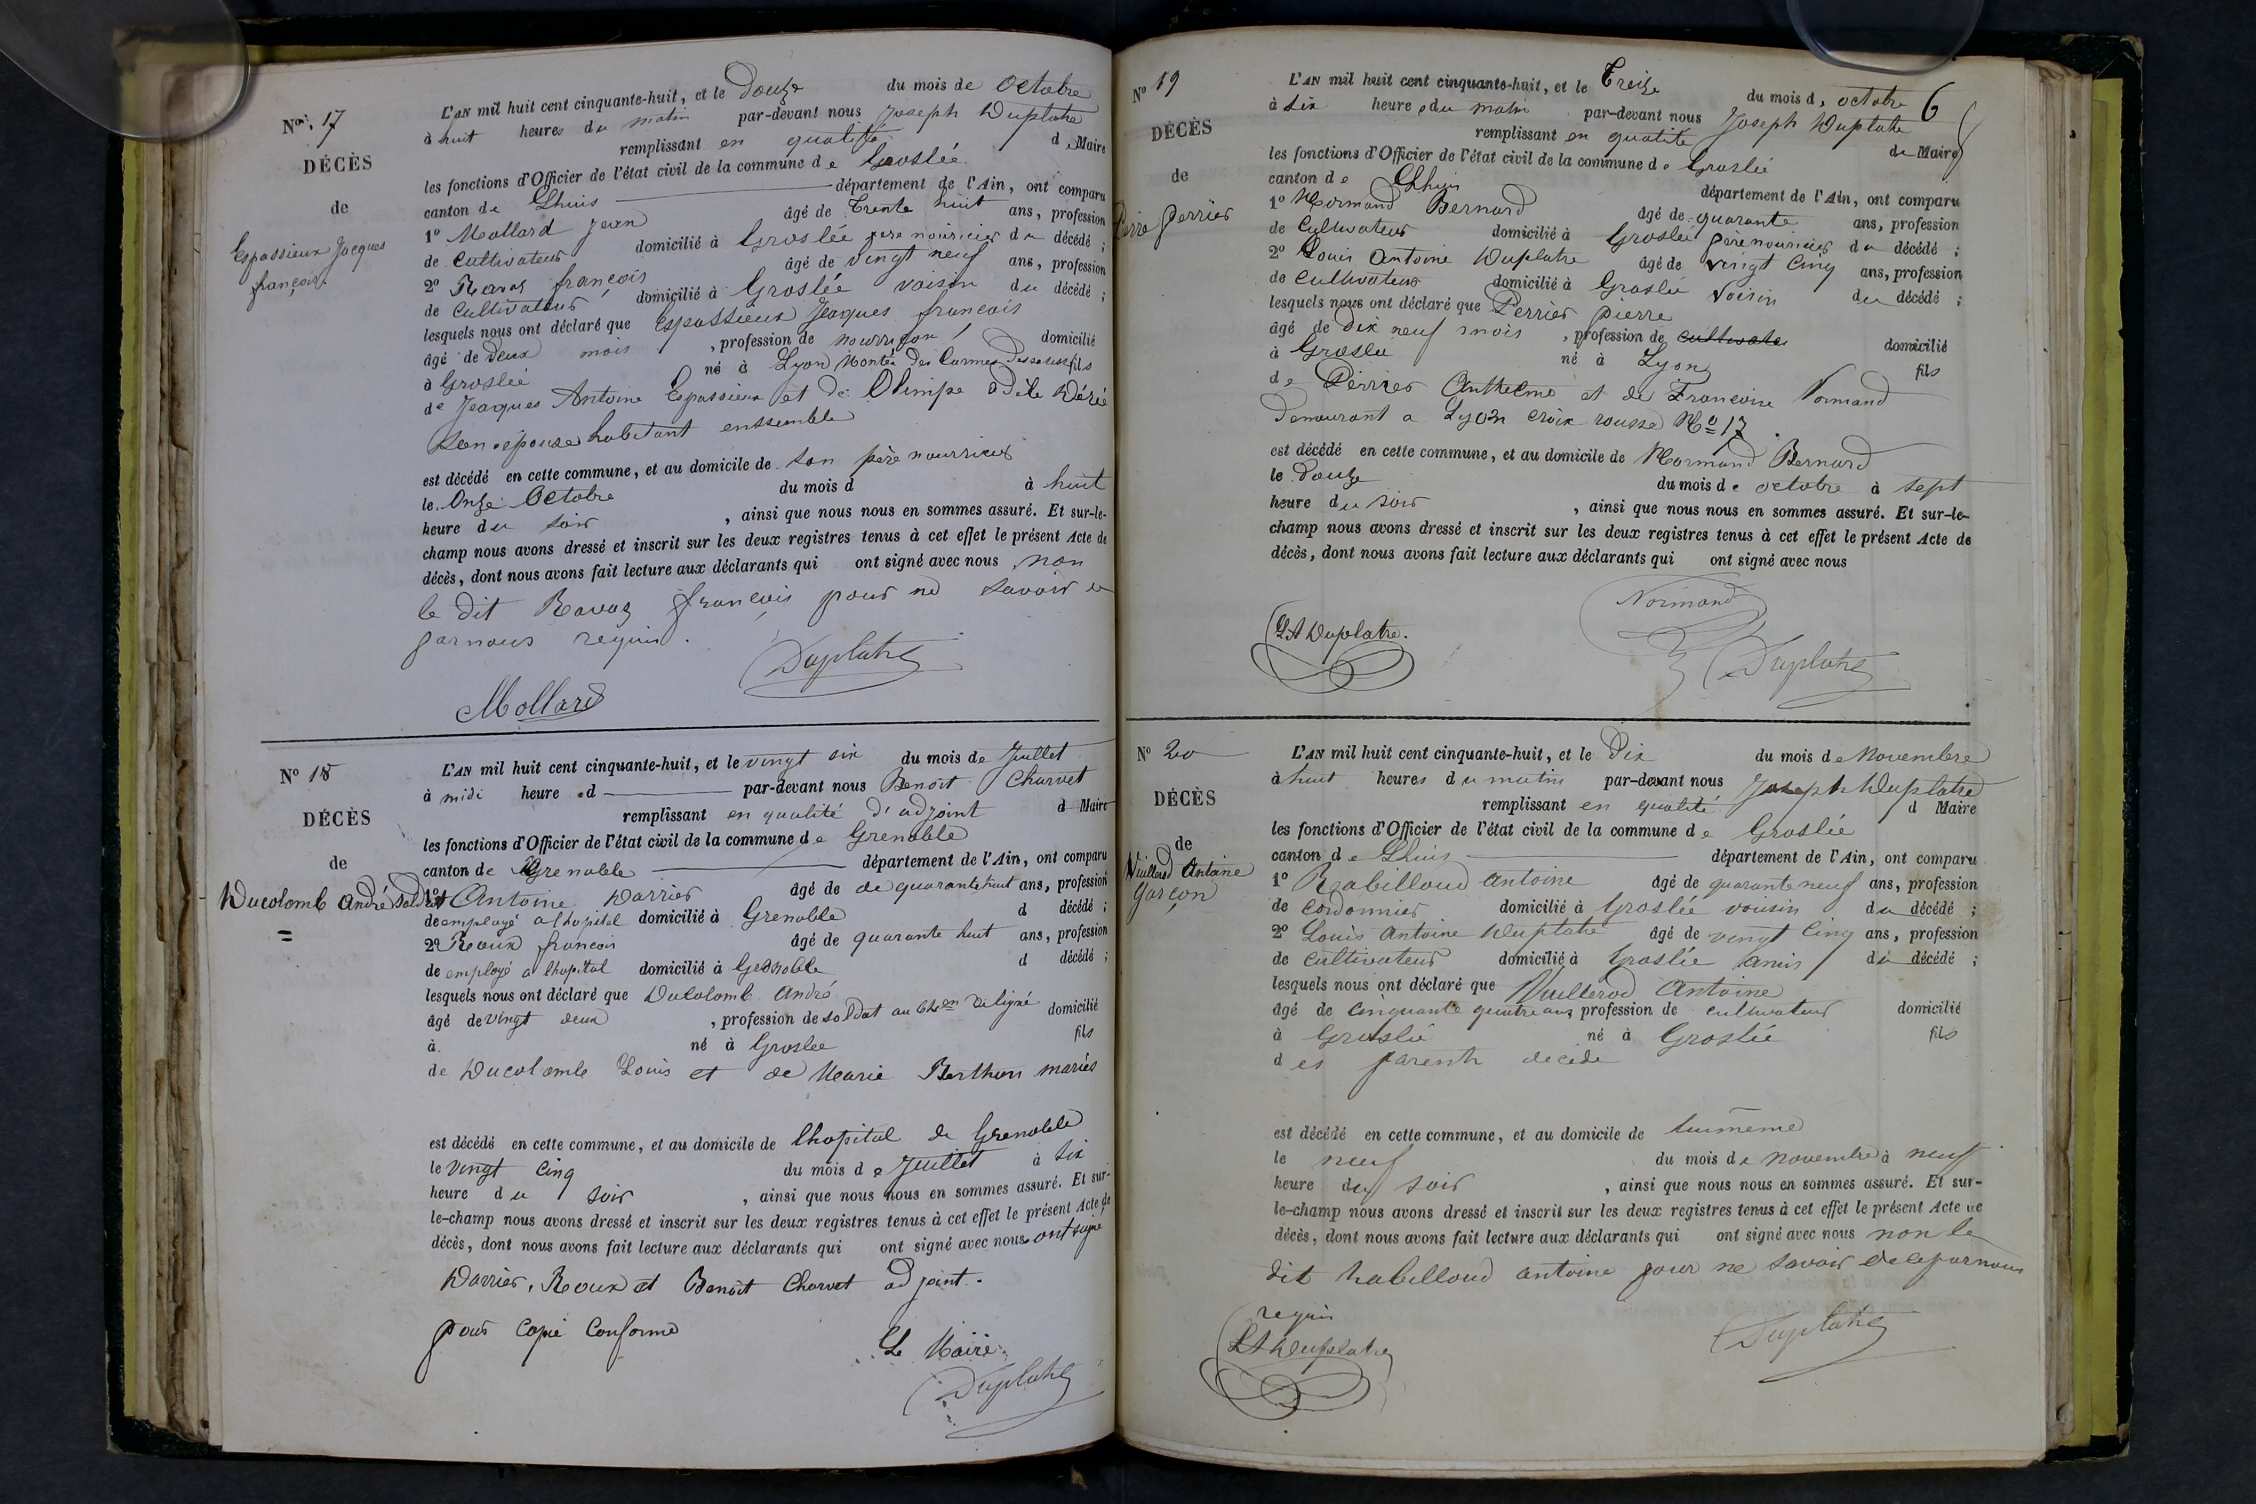 Nº 17
DÉCÈS
de
Espassieux Jacques
françois
L'AN mil huit cent cinquante-huit, et le Douze du mois de Octobre
à huit heures du matin par-devant nous Joseph Duplatre
remplissant en qualité d Maire
les fonctions d'Officier de l'état civil de la commune de Groslée
canton de Lhuis département de l'Ain, ont comparu
1º Mollard Jean âgé de Trente huit ans, profession
de cultivateur domicilié à Groslée père nourricier du décédé ;
2º Ravaz françois âgé de vingt neuf ans, profession
de cultivateur domicilié à Groslée voisin du décédé ;
lesquels nous ont déclaré que Espassieux Jacques francois
âgé de Deux mois, profession de nourriçon domicilié
à Groslée né à Lyon Montée des Carmes Dessousse fils
de Jeaques Antoine Espassieux et de Olimpe Odile Déré
son épouse habitant enssemble
est décédé en cette commune, et au domicile de son père nourricier
le Onze Octobre du mois d à huit
heure du soir, ainsi que nous nous en sommes assuré. Et sur-le-
champ nous avons dressé et inscrit sur les deux registres tenus à cet effet le présent Acte de
décès, dont nous avons fait lecture aux déclarants qui ont signé avec nous non
le dit Ravaz françois pour ne savoir de
parnous requis.
Duplatre
Mollard
Nº 18
DÉCÈS
de
Ducolomb André Soldat
L'AN mil huit cent cinquante-huit, et le vingt six du mois de Juillet
à midi heure d par-devant nous Benoit Charvet
remplissant en qualité d'adjoint d Maire
les fonctions d'Officier de l'état civil de la commune de Grenoble
canton de Grenoble département de l'Ain, ont comparu
1º Antoine Darrier âgé de de quarante huit ans, profession
de employé a lhopital domicilié à Grenoble d décédé ;
2º Roux francois âgé de quarante huit ans, profession
de employé a lhopital domicilié à Grenoble d décédé ;
lesquels nous ont déclaré que Ducolomb André
âgé de vingt deux, profession de soldat au 64en de ligne domicilié
à né à Groslée fils
de Ducolomb Louis et de Marie Berthon mariés
est décédé en cette commune, et au domicile de lhopital de Grenoble
le vingt cinq du mois de Juillet à six
heure du soir, ainsi que nous nous en sommes assuré. Et sur-
le-champ nous avons dressé et inscrit sur les deux registres tenus à cet effet le présent Acte de
décès, dont nous avons fait lecture aux déclarants qui ont signé avec nous ont signé
Darrier, Roux et Benoit Charvet adjoint.
pour copie conforme
Le Maire
Duplatre
6
Nº 19
DÉCÈS
de
Pierre Perrier
L'AN mil huit cent cinquante-huit, et le Treize du mois d, octobre
à six heure, du matin par-devant nous Joseph Duplatre
remplissant en qualité de Maire
les fonctions d'Officier de l'état civil de la commune de Groslée
canton de Lhuis département de l'Ain, ont comparu
1º Normand Bernard âgé de quarante ans, profession
de Cultivateur domicilié à Groslée père nourricier du décédé ;
2º Louis Antoine Duplatre âgé de vingt Cinq ans, profession
de cultivateur domicilié à Groslée Voisin du décédé ;
lesquels nous ont déclaré que Perrier pierre
âgé de Dix neuf mois, profession de cultivate domicilié
à Groslée né à Lyon fils
de Perrier Anthelme et de Francoise Normand
Demeurant a Lyon croix rousse Nº 17
est décédé en cette commune, et au domicile de Normand Bernard
le Douze du mois de octobre à sept
heure du soir, ainsi que nous nous en sommes assuré. Et sur-le-
champ nous avons dressé et inscrit sur les deux registres tenus à cet effet le présent Acte de
décès, dont nous avons fait lecture aux déclarants qui ont signé avec nous
Normand
LA Duplatre.
Duplatre
Nº 20
DÉCÈS
de
Vuillerod Antoine
Garçon
L'AN mil huit cent cinquante-huit, et le Dix du mois de Novembre
à huit heures du matin par-devant nous Joseph Duplatre
remplissant en qualité d Maire
les fonctions d'Officier de l'état civil de la commune de Groslée
canton de Lhuis département de l'Ain, ont comparu
1º Rabilloud Antoine âgé de quarante neuf ans, profession
de Cordonnier domicilié à Groslée voisin du décédé ;
2º Louis Antoine Duplatre âgé de vingt Cinq ans, profession
de Cultivateur domicilié à Groslée amis du décédé ;
lesquels nous ont déclaré que Vuillerod Antoine
âgé de cinquante quatre ans profession de cultivateur domicilié
à Groslée né à Groslée fils
des parents décédé
est décédé en cette commune, et au domicile de luimême
le neuf du mois de Novembre à neuf
heure du soir, ainsi que nous nous en sommes assuré. Et sur-
le-champ nous avons dressé et inscrit sur les deux registres tenus à cet effet le présent Acte de
décès, dont nous avons fait lecture aux déclarants qui ont signé avec nous non le
dit habilloud antoine pour ne savoir de ce parnous
requis
LA Duplatre
Duplatre